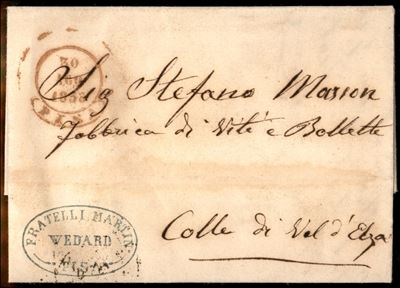 30
AGO
1858
(PISA)
Sig Stefano Masson
Fabbrica di Vité e Bollette
Colle di Val d'Elsa
FRATELLI MARTIN
WEDARD
PISA